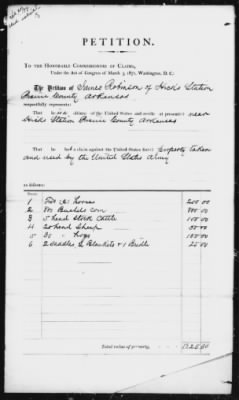 PETITION.
To the Honorable Commissioners of Claims,
Under the Act of Congress of March 3, 1871, Washington, D.C.:
The Petition of James Robinson of Hicks Station
Prairie County Arkansas
respectfully represents:
That he is a citizen of the United States and reside at present near
Hicks Station Prairie County Arkansas
That he has a claim against the United States for property taken
and used by the United States Army
as follows:
1 Two horses 200.00
2 Bushels corn 800.00
3 5 head Stock Cattle 100.00
4 20 head Sheep 50.00
5 30 " hogs
6 2 saddles, Blankets & 1 Bridle 25.00
Total value of property,